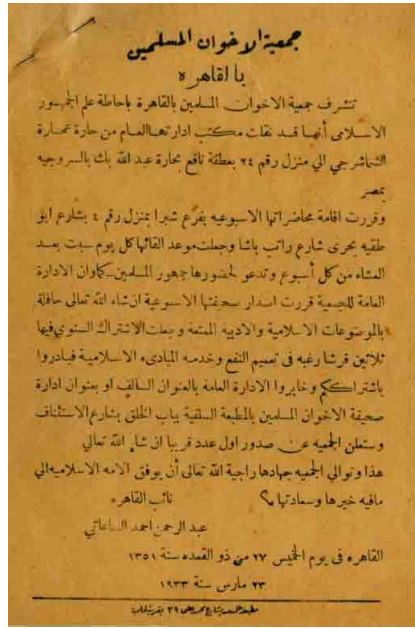 جمعية الاخوان المسلمين
بالقاهرة
تتشرف جمعية الاخوان المسلمين بالقاهرة باحاطة علم الجمهور
الاسلامى أنها قد نقلت مكتب ادارتها العام من حارة عمارة
الشماشرجي الي منزل رقم ٢٤ بعطفة نافع بحارة عبد الله بك بالسروجيه
بمصر
وقررت اقامة محاضراتها الاسبوعيه بفرع شبرا بمنزل رقم ٤ بشارع ابو
طقيه بحرى شارع راتب باشا وجعلت موعد القائها كل يوم سبت بعد
العشاء من كل أسبوع وتدعو لحضورها جمهور المسلمين كما وان الادارة
العامة للجمعية قررت اصدار صحيفتها الاسبوعية ان شاء الله تعالى حافلة
بالموضوعات الاسلامية والادبية الممتعة وجعلت الاشتراك السنوي فيها
ثلاثين قرشا رغبه فى تعميم النفع وخدمه المبادىء الاسلامية فبادروا
باشتراككم وخابروا الادارة العامة بالعنوان السالف او بعنوان ادارة
صحيفة الاخوان المسلمين بالمطبعة السلفية بباب الخلق بشارع الاستئناف
وستعلن الجمعيه عن صدور اول عدد قريبا ان شاء الله تعالي
هذا وتوالي الجمعيه جهادها راجية الله تعالى أن يوفق الامه الاسلاميه الي
مافيه خيرها وسعادتها نائب القاهره
عبد الرحمن احمد الساعاتي
القاهره فى يوم الخميس ٢٧ من ذو القعده سنة ١٣٥١
٢٣ مارس سنة ١٩٣٣